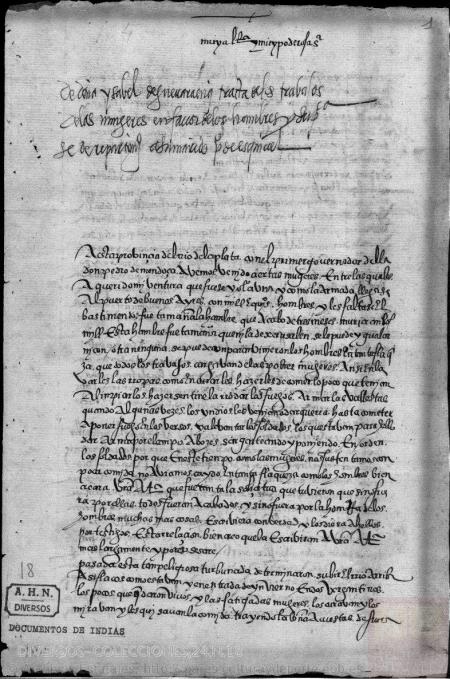 1
muy alta y muy poderosa sª
De doña ysabel de guevara en q tracta de los trabajos
de las mugeres en favor de los hombres y
A esta provincia del rio de la plata con el primer governador de ella
don pedro de mendoça avemos venido ciertas mugeres entre las quales
a querido mi ventura que fuese yo la una y como la armada llegase
al puerto de buenos ayres con mill e qºs hombres y les faltase el
bastimento fue tamaña la hambre que a cabo de tres meses murieron los
mill esta hambre fue tamaña que ni la de xerusalen se le puede ygualar
ni con otra ninguna se puede conparar vinieron los hombres en tanta flaque
za que todos los travajos cargavan de las pobres mugeres ansi en la
varles las ropas como en curarles hazerles de comer lo poco que tenian
a linpiarlos hazer sentinela rondar los fuegos armar las vallestas
quando algunas vezes los yndios les venian a dar guerra hasta cometer
a poner fuego en los versos y a levantar los soldados los questavan para hello
dar arma por el canpo a bozes sargenteando y poniendo en orden
los soldados porque en este tienpo como las mugeres nos sustentamos con
poca comida no aviamos caydo en tanta flaqueza como los hombres bien
creera V. A. que fue tanta la solicitud que tuvieron que si no fue
ra por ellas todos fueran acabados y si no fuera por la honrra de los
hombres muchas mas cosas escriviera con verdad y los diera a hellos
por testigos esta relacion bien creo que la escriviran a V. A.
mas largamente y por eso sesare
pasada esta tan peligrosa turbunada determinaron subir el rio arriba
asi flacos como estavan y en entrada de ynvierno en dos vergantines
los pocos que quedaron vivos y las fatigadas mugeres los curavan y los
miravan y les guisavan la comida trayendo la leña a cuestas de fuera
18
A. H. N.
DIVERSOS
DOCUMENTOS DE INDIAS
DIVERSOS-COLECCIONES,24,N.18